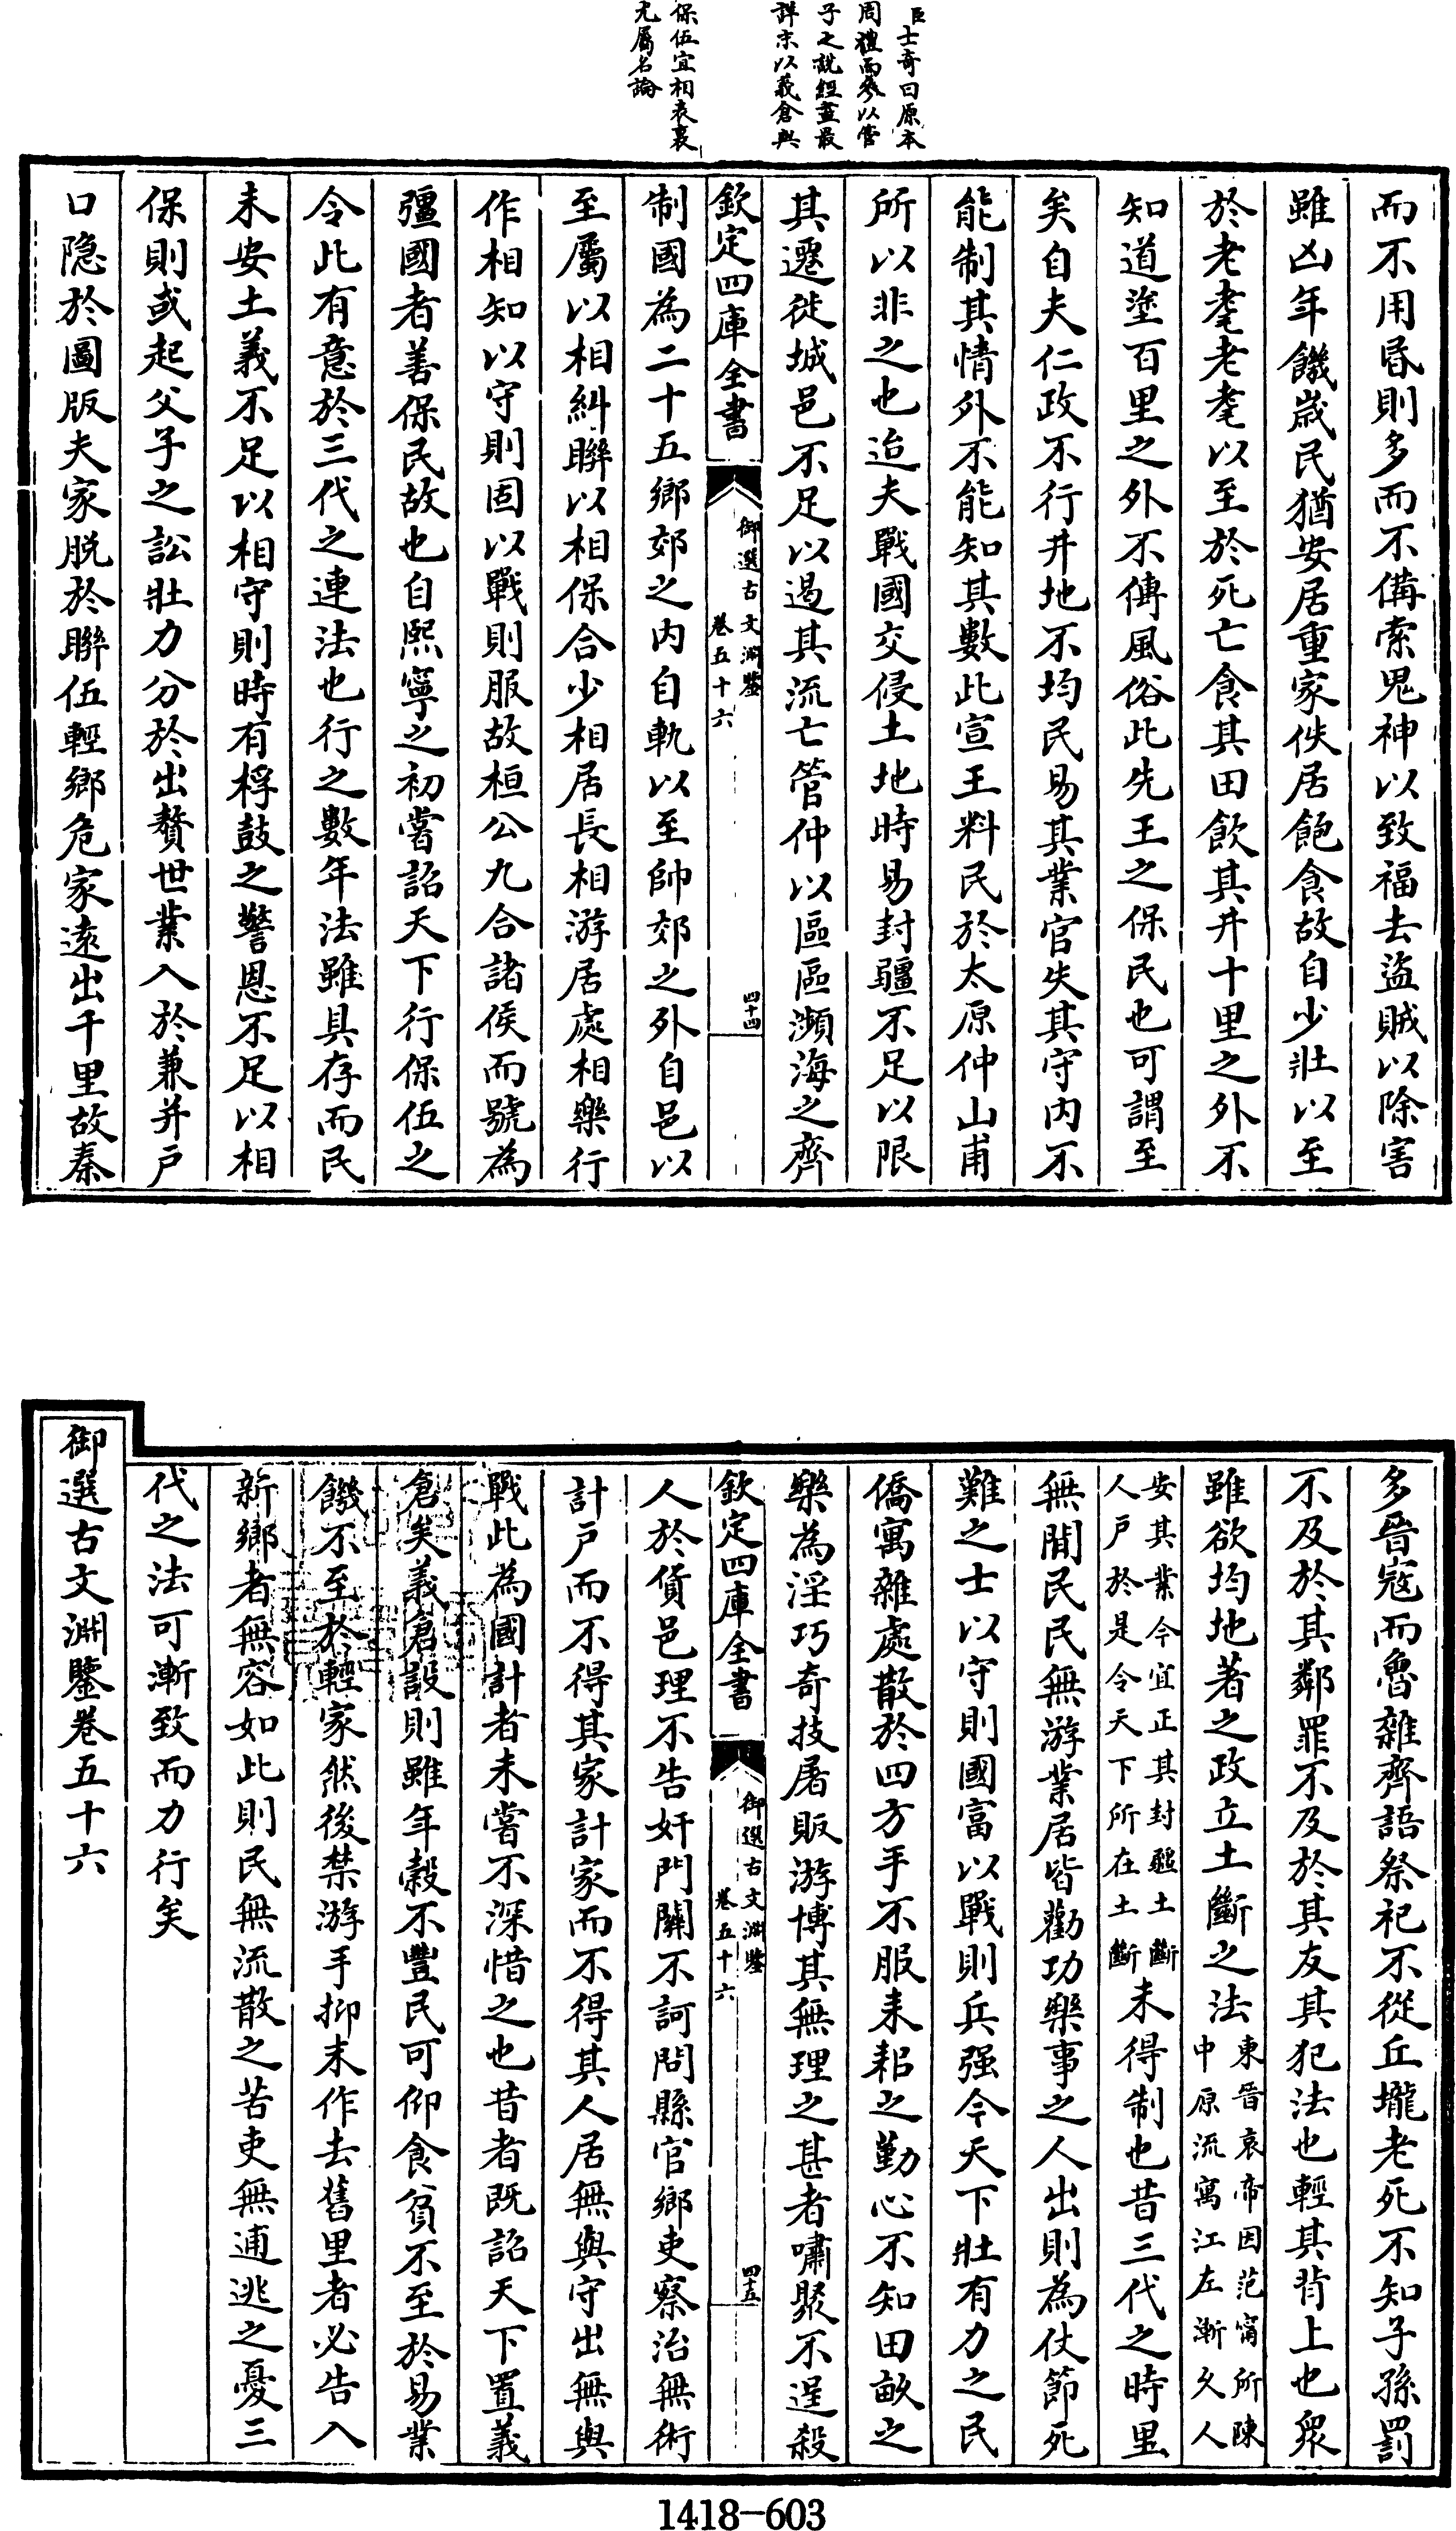 臣士奇曰原本
周禮而參以管
子之說經畫最
詳末以義倉與
保伍宜相表裏
尤屬名論
而不用昬則多而不備索鬼神以致福去盜賊以除害
雖凶年饑歲民猶安居重家佚居飽食故自少壯以至
於老耄老耄以至於死亡食其田飲其井十里之外不
知道塗百里之外不傳風俗此先王之保民也可謂至
矣自夫仁政不行井地不均民易其業官失其守内不
能制其情外不能知其數此宣王料民於太原仲山甫
所以非之也迨夫戰國交侵土地時易封疆不足以限
其遷徙城邑不足以遏其流亡管仲以區區瀕海之齊
欽定四庫全書
御選古文淵鑒
卷五十六
四十四
制國為二十五鄉郊之内自軌以至帥郊之外自邑以
至屬以相糾聯以相保合少相居長相游居處相樂行
作相知以守則固以戰則服故桓公九合諸侯而號為
彊國者善保民故也自熙寧之初嘗詔天下行保伍之
令此有意於三代之連法也行之數年法雖具存而民
未安土義不足以相守則時有桴鼓之警恩不足以相
保則或起父子之訟壯力分於出贅世業入於兼并戶
口隱於圖版夫家脱於聯伍輕鄉危家遠出千里故秦
多晉宼而魯雜齊語祭祀不從丘壠老死不知子孫罰
不及於其鄰罪不及於其友其犯法也輕其背上也衆
雖欲均地著之政立土斷之法東晉哀帝因范甯所陳
中原流寓江左漸久人
安其業今宜正其封疆土斷
人戶於是令天下所在土斷未得制也昔三代之時里
無閒民民無游業居皆勸功樂事之人出則為仗節死
難之士以守則國富以戰則兵强今天下壯有力之民
僑寓雜處散於四方手不服耒耜之勤心不知田畝之
樂為淫巧奇技屠販游博其無理之甚者嘯聚不逞殺
欽定四庫全書
御選古文淵鑒
卷五十六
四十五
人於貨邑理不告奸門關不訶問縣官鄉吏察治無術
計戶而不得其家計家而不得其人居無與守出無與
戰此為國計者未嘗不深惜之也昔者既詔天下置義
倉矣義倉設則雖年穀不豐民可仰食貧不至於易業
饑不至於輕家然後禁游手抑末作去舊里者必告入
新鄉者無容如此則民無流散之苦吏無逋逃之憂三
代之法可漸致而力行矣
御選古文淵鑒卷五十六
1418-603